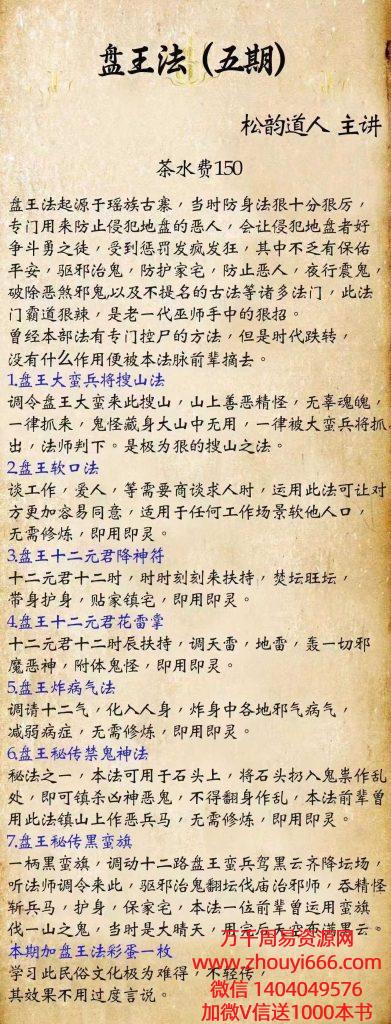 盘王法（五期）
松韵道人 主讲
茶水费150
盘王法起源于瑶族古寨，当时防身法狠十分狠厉，
专门用来防止侵犯地盘的恶人，会让侵犯地盘者好
争斗勇之徒，受到惩罚发疯发狂，其中不乏有保佑
平安，驱邪治鬼，防护家宅，防止恶人，夜行震鬼，
破除恶煞邪鬼,以及不提名的古法等诸多法门，此法
门霸道狠辣，是老一代巫师手中的狠招。
曾经本部法有专门控尸的方法，但是时代跌转，
没有什么作用便被本法脉前辈摘去。
1.盘王大蛮兵将搜山法
调令盘王大蛮来此搜山，山上善恶精怪，无辜魂魄，
一律抓来，鬼怪藏身大山中无用，一律被大蛮兵将抓
出，法师判下。是极为狠的搜山之法。
2.盘王软口法
谈工作，爱人，等需要商谈求人时，运用此法可让对
方更加容易同意，适用于任何工作场景软他人口，
无需修炼，即用即灵。
3.盘王十二元君降神符
十二元君十二时，时时刻刻来扶持，焚坛旺坛，
带身护身，贴家镇宅，即用即灵。
4.盘王十二元君花雷掌
十二元君十二时辰扶持，调天雷，地雷，轰一切邪
魔恶神，附体鬼怪，即用即灵。
5.盘王炸病气法
调请十二气，化入人身，炸身中各地邪气病气，
减弱病症，无需修炼，即用即灵。
6.盘王秘传禁鬼神法
秘法之一，本法可用于石头上，将石头扔入鬼祟作乱
处，即可镇杀凶神恶鬼，不得翻身作乱，本法前辈曾
用此法镇山上作恶兵马，无需修炼，即用即灵。
7.盘王秘传黑蛮旗
一柄黑蛮旗，调动十二路盘王蛮兵驾黑云齐降坛场，
听法师调令来此，驱邪治鬼翻坛伐庙治邪师，吞精怪
斩兵马，护身，保家宅，本法一位前辈曾运用蛮旗
伐一山之鬼，当时是大晴天，用完后天空布满黑云。
本期加盘王法彩蛋一枚
学习此民俗文化极为难得，不轻传，
其效果不用过度言说。
万千周易资源网
www.zhouyi666.com
微信 1404049576
加微V信送1000本书